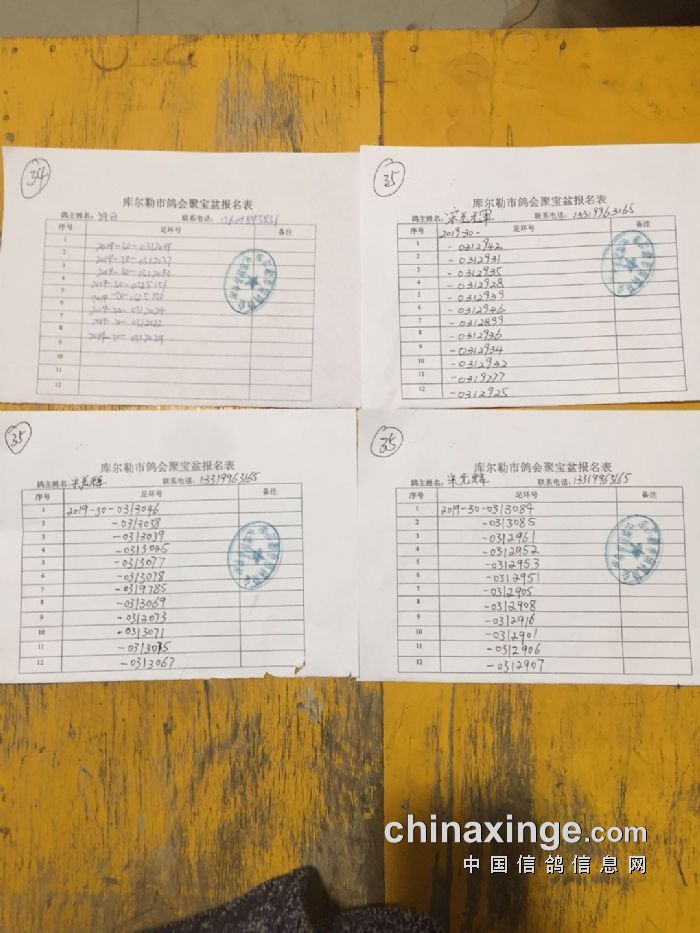 34
库尔勒市鸽会聚宝盆报名表
鸽主姓名: 联系电话:
序号 足环号 备注
1
2 2019-30-0312019
3 2019-30-0312037
4 2019-30-0312040
5 2019-30-0325151
6 2019-30-0325150
7 2019-30-0312024
8 2019-30-0312022
9 2019-30-0312029
10
11
12
35
库尔勒市鸽会聚宝盆报名表
鸽主姓名: 宋光辉 联系电话: 13319963165
序号 足环号 备注
2019-30-
1 -0312942
2 -0312931
3 -0312935
4 -0312928
5 -0312939
6 -0312946
7 -0312899
8 -0312936
9 -0312934
10 -0312932
11 -0319777
12 -0312925
35
库尔勒市鸽会聚宝盆报名表
鸽主姓名: 宋光辉 联系电话: 13319963165
序号 足环号 备注
1 2019-30-0313046
2 -0313038
3 -0313039
4 -0313025
5 -0313077
6 -0313078
7 -0319785
8 -0313069
9 -0312073
10 -0313071
11 -0313075
12 -0313067
35
库尔勒市鸽会聚宝盆报名表
鸽主姓名: 宋光辉 联系电话: 13319963165
序号 足环号 备注
1 2019-30-0313084
2 -0313085
3 -0312961
4 -0312952
5 -0312953
6 -0312951
7 -0312905
8 -0312908
9 -0312916
10 -0312901
11 -0312906
12 -0312907
chinaxinge.com
中国信鸽信息网